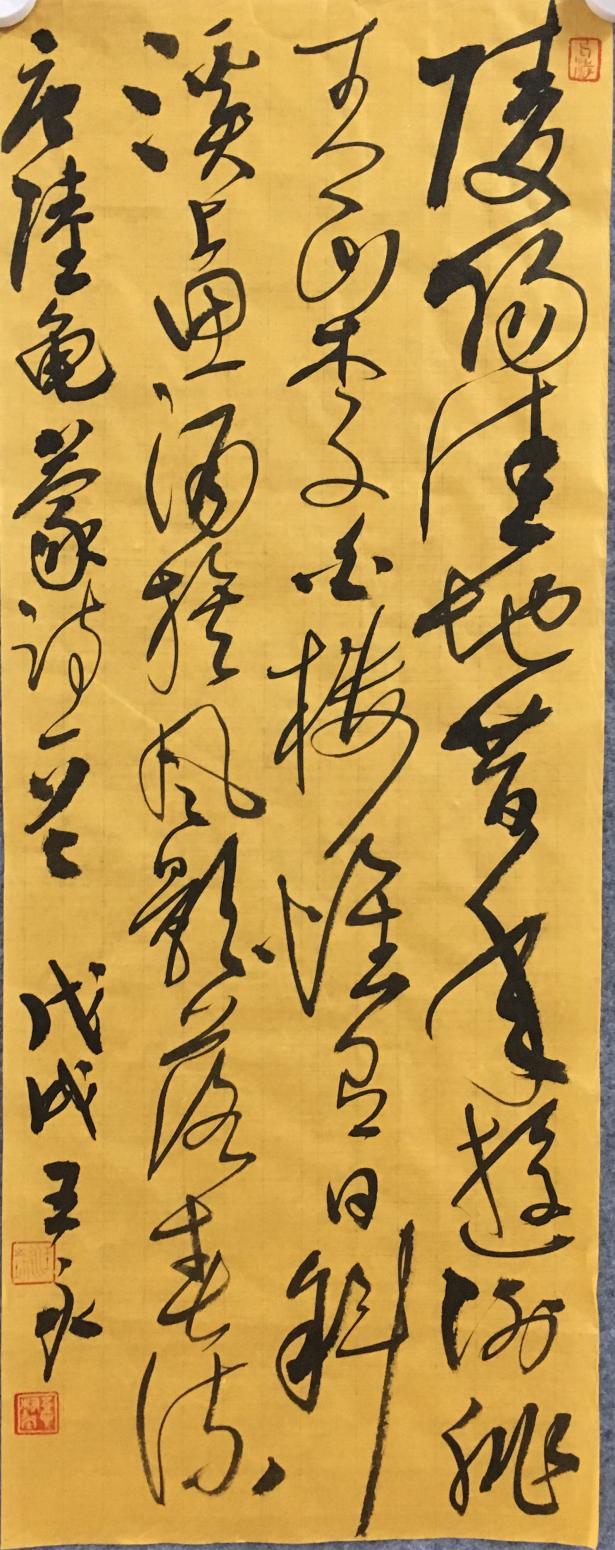 陵陽佳地昔年遊謝朓
青山李白楼惟有日斜
溪上思酒旗风影落春流
唐陸亀蒙詩一首 戊戌王永